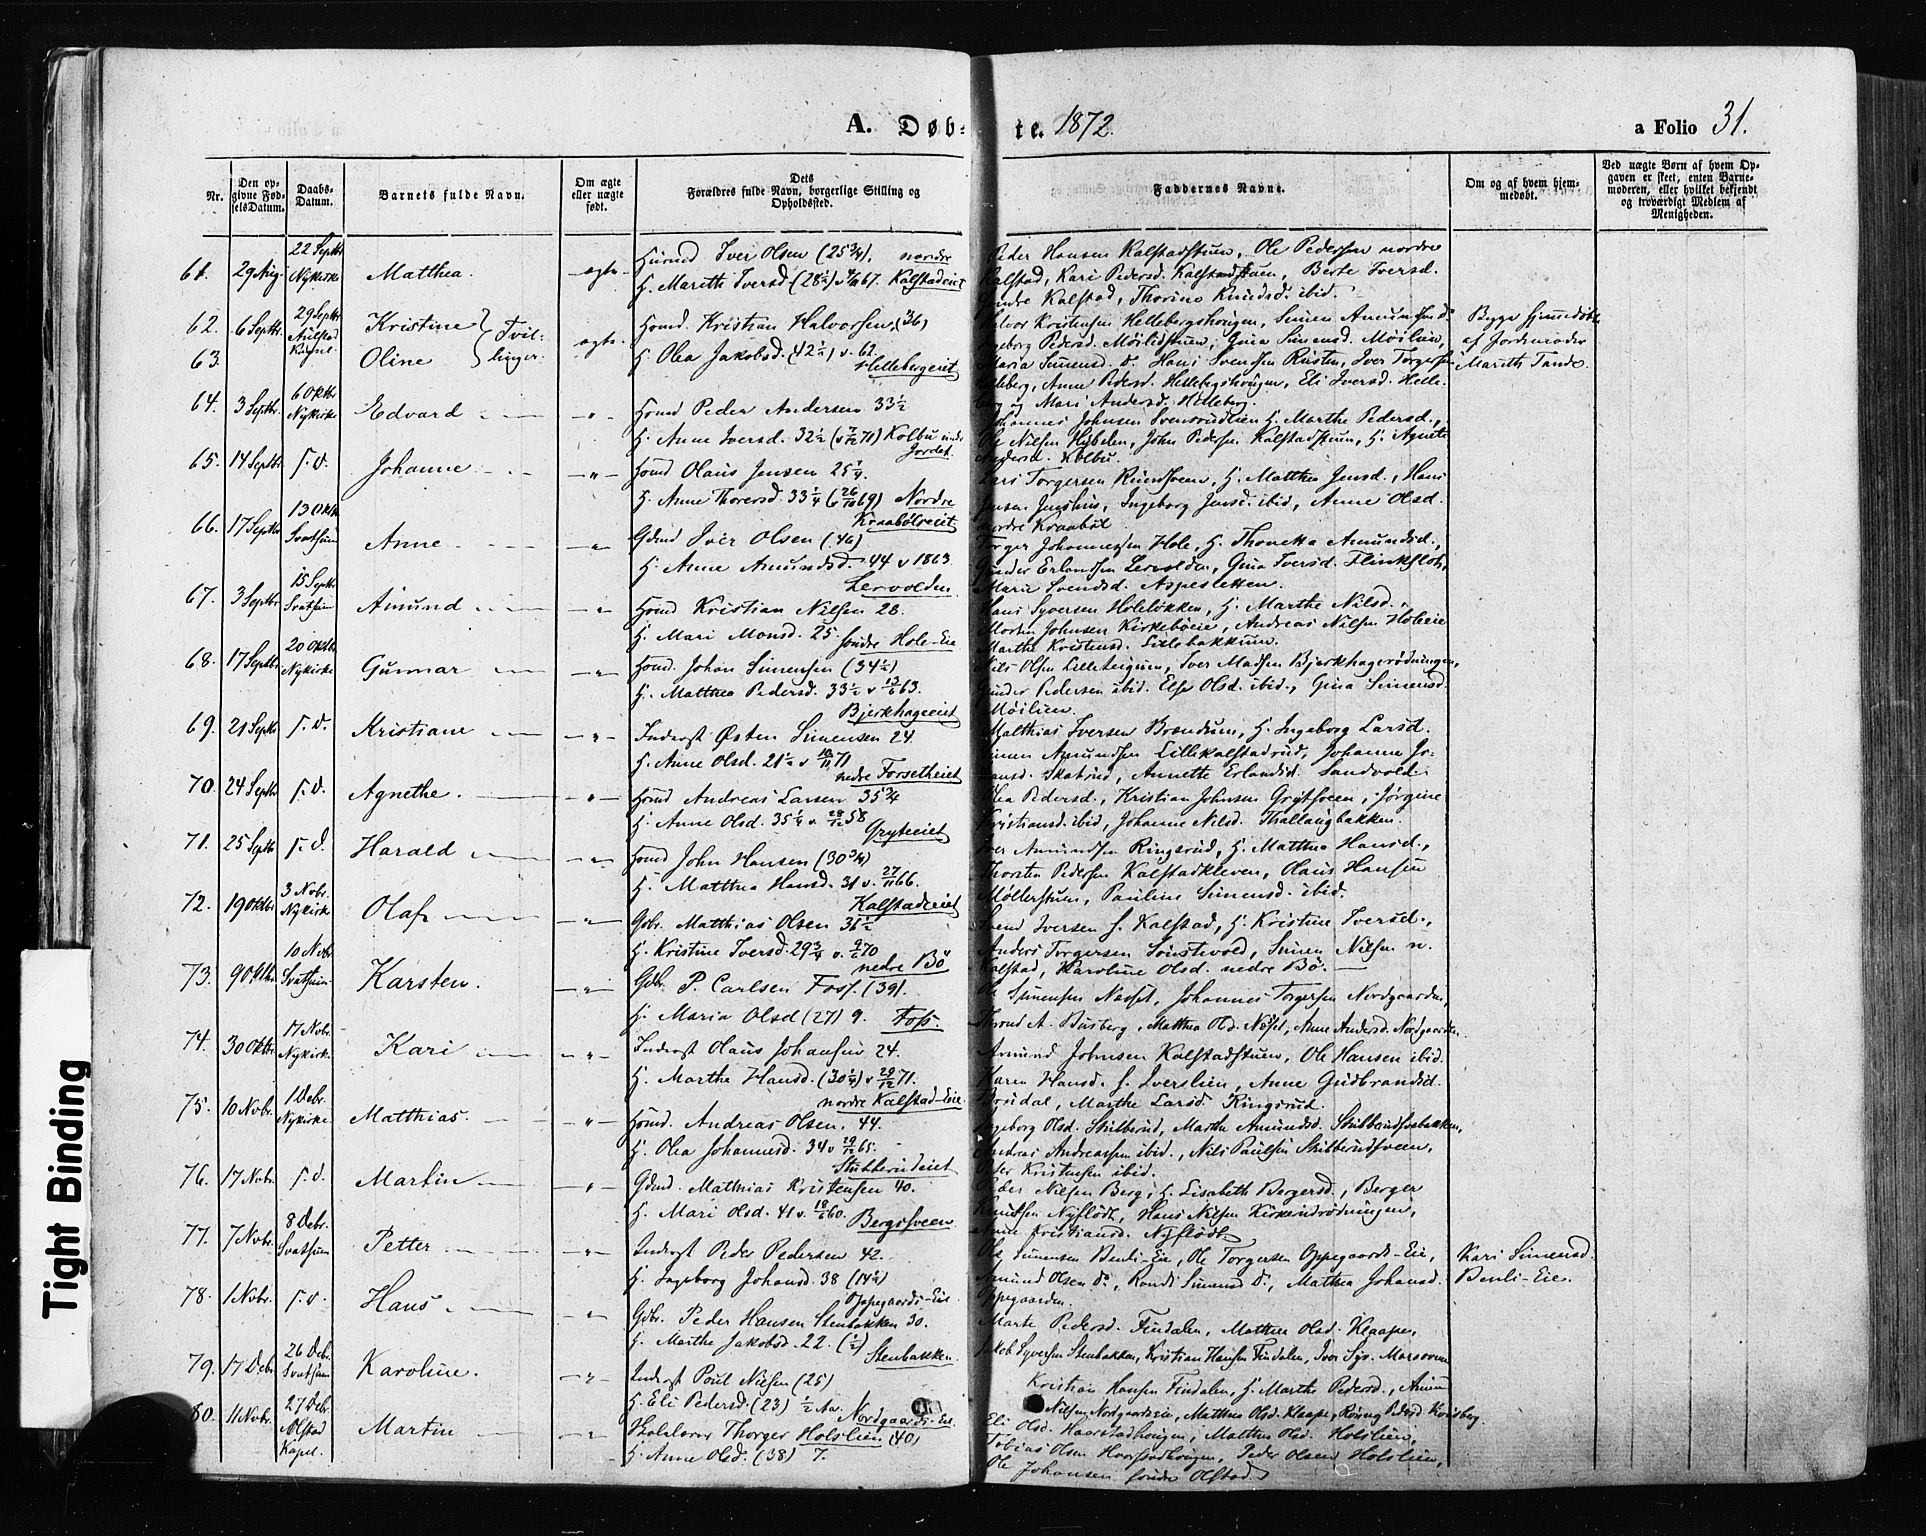 A. Døb-te. 1872. a Folio 31.
Nr.
Den opgivne FødselsDatum.
Daabs-Datum.
Barnets fulde Navn.
Om ægte eller uægte født.
Dets Forældres fulde Navn, borgerlige Stilling og Opholdssted.
Faddernes Navne.
Om og af hvem hjemmedøbt.
Ved uægte Børn af hvem Opgaven er skeet, enten Barnemoderen, eller hvilket bekjendt og troværdigt Medlem af Menigheden.
61. 29 Aug. 22 Septbr. Nykirke Matthea. ægte
Huusmd Iver Olsen (25 3/4), nordre
H. Marith Iversd (28 1/2) Kalstadeiet
Peder Hansen Kalstadstuen, Ole Pedersen nordre
Kalstad, Kari Pedersd. Kalstadstuen, Berte Iversd.
søndre Kalstad, Thorine Knudsd. ibid.
62. 6 Septbr. 29 Septbr. Aulstad Kapel. Kristine } Tvil-
63. Oline } linger. ægte
Huusmd. Kristian Halvorsen (36)
H. Olea Jakobsd. (42 1/2) v. 62. Hellebergeiet
Halvor Kristensen Hellebergshougen, Simen Amundsen
Ingeborg Pedersd. Möilistuen, Gina Simensd. Möilien,
Maria Simensd. do. Hans Svendsen Rusten, Iver Torgersen
Helleberg, Anne Pedersd. Hellebergshougen, Eli Iversd. Helle-
berg, Mari Andersd. Helleberg.
Begge hjemmedøbte
af Jordemoder
Marith Tande.
64. 3 Septbr. 6 Oktbr Nykirke Edvard - " -
Huusmd Peder Andersen 33 1/2
H. Anne Iversd. 32 1/2 (v 7/12 71) Kolbu under
Jordet.
Johannes Johnsen Svensrudlien H. Marthe Pedersd.,
Ole Nilsen Hybelen, John Pedersen Kalstadstuen, H. Agnete
Andersd. Kolbu.
65. 14 Septbr. s. d. Johanne - " -
Huusmd Olaus Jensen 25 1/4.
H. Anne Thorersd. 33 1/4 Nordre
Kraabøleiet
Lars Torgersen Rundsveen, H. Matthea Jensd., Hans
Jensen Jenshus, Ingeborg Jensd. ibid, Anne Olsd.
nordre Kraabøl
66. 17 Septbr. 13 Oktbr Svatsum Anne - " -
Gdmd Iver Olsen (46)
H. Anne Amundsd. 44 v 1863.
Lervolden
Torger Johannessen Hole, H. Thonetta Amundsd.,
Gunder Erlandsen Lervolden, Gina Iversd. Flinkslot,
Marie Svendsd. Aspesletten.
67. 3 Septbr. 15 Septbr. Svatsum Amund - " -
Huusmd Kristian Nilsen 28.
H. Mari Monsd. 25. søndre Hole-Eie
Hans Syversen Holeløkken, H. Marthe Nilsd.,
Morten Johnsen Kirkebøeie, Andreas Nilsen Holeeie
Marthe Kristensd. Lillebakken.
68. 17 Septbr. 20 Oktbr. Nykirke Gunnar - " -
Huusmd. Johan Simensen (34 1/2)
H. Matthea Pedersd. 33 1/2 v 13/6 63.
Bjerkhageeiet
Nils Olsen Lilleteigen, Iver Madsen Bjerkhagerødningen,
Gunder Pedersen ibid. Else Olsd. ibid., Gina Simensd.
Möilien.
69. 21 Septbr s. d. Kristiane - " -
Inderst Østen Simensen 24.
H. Anne Olsd. 21 1/2 v 10/11 71
nedre Forsetheiet
Matthias Iversen Brændum, H. Ingeborg Larsd.
Simen Amundsen Lillekalstadrud, Johanne Jo-
hansd. Skatrud, Annette Erlandsd. Sandvold.
70. 24 Septbr s. d. Agnethe. - " -
Huusmd Andreas Larsen 35 3/4
H. Anne Olsd. 35 1/4 v. 28/12 58
Gryteeiet
Olea Pedersd., Kristian Johnsen Grytsveen, Jørgine
Kristiansd. ibid, Johanne Nilsd. Thallaugbakken.
71. 25 Septbr s. d. Harald - " -
Huusmd John Hansen (30 3/4)
H. Matthea Hansd. 31 v. 27/11 66.
Kalstadeiet
Iver Amundsen Ringsrud, H. Matthea Hansd.,
Thorsten Pedersen Kalstadkleven, Olaus Hansen
Møllerstuen, Pauline Simensd. ibid.
72. 19 Oktbr 3 Novbr. Nykirke Olaf - " -
Gbr. Matthias Olsen 31 1/2
H. Kristine Iversd. 29 3/4 v. 9/6 70
nedre Bö
Svend Iversen s. Kalstad, H. Kristine Iversd.,
Anders Torgersen Sønstevold, Simen Nilsen n.
Kalstad, Karoline Olsd. nedre Bö.
73. 9 Oktbr. 10 Novbr Svatsum Karsten. - " -
Gbr. P. Carlsen Foss. (39).
H. Maria Olsd (27) 9. Foss.
Ole Simensen Næset, Johannes Torgersen Nordgaarden,
Thrond A. Busberg, Matthea Olsd. Næset, Anne Andersd. Nordgaarden.
74. 30 Oktbr. 17 Novbr. Nykirke Kari - " -
Inderst Olaus Johansen 24.
H. Marthe Hansd. (30 1/4) v 29/12 71.
nordre Kalstad-Eie
Amund Johnsen Kalstadstuen, Ole Hansen ibid.
Karen Hansd. s. Iverslien, Anne Gudbrandsd.
Brudal, Marthe Larsd. Ringsrud.
75. 10 Novbr. 1 Debr. Nykirke. Matthias. - " -
Huusmd. Andreas Olsen. 44.
H. Olea Johannesd. 34 v 29/12 65.
Stubberudeiet
Ingeborg Olsd. Stubberud, Marthe Amundsd. Stubberudsbakken,
Andreas Andreassen ibid., Nils Paulsen Stubberudsveen,
Peder Kristensen ibid.
76. 17 Novbr. s. d. Martin - " -
Gdmd. Matthias Kristensen 40.
H. Mari Olsd. 41 v. 18/6 60. Bergsveen
Peder Nilsen Berg, H. Lisabeth Bergersd., Berger
Knudsen Nyflødt, Hans Nilsen Kirkerudrødningen,
Anne Kristiansd. Nyflødt.
77. 7 Novbr. 8 Debr. Svatsum Petter - " -
Inderst Peder Pedersen 42.
H. Ingeborg Johansd. 38 (14 1/2)
Oppegaards-Eie
Ole Simensen Benli-Eie, Ole Torgersen Oppegaards-Eie,
Amund Olsen do, Rondi Simensd do., Mathea Johansd.
Oppegaarden.
Kari Simensd.
Benli-Eie.
78. 1 Novbr. s. d. Hans. - " -
Gbr. Peder Hansen Stenbakken 30.
H. Marthe Jakobsd. 22. (1/2)
Stenbakken.
Marte Pedersd. Findalen, Mathea Olsd. Klaape,
Jakob Syversen Stenbakken, Kristian Hansen Findalen, Iver Syv.
79. 17 Debr 26 Debr. Svatsum Karoline. - " -
Inderst Poul Nilsen (25)
H. Eli Pedersd. (23) 1/2 Aar. Nordgaards-Eie
Kristian Hansen Findalen, H. Marthe Pedersd.,
Nilsen Nordgaardseie, Mathea Olsd. Klaape,
80. 11 Novbr. 27 Debr. Olstad Kapel. Martin - " -
Skolelærer Thorger Holslien (40)
H. Anne Olsd. (38) 7.
Eli Olsd. Haarstadhougen, Mathea Olsd. Holslien,
Tobias Olsen Haarstadhougen, Peder Olsen Holslien,
Ole Johansen søndre Olstad.
Tight Binding